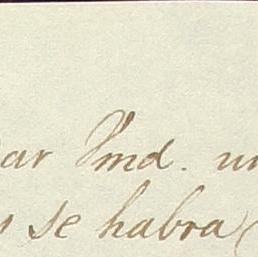 ar Vmd. un
se habra